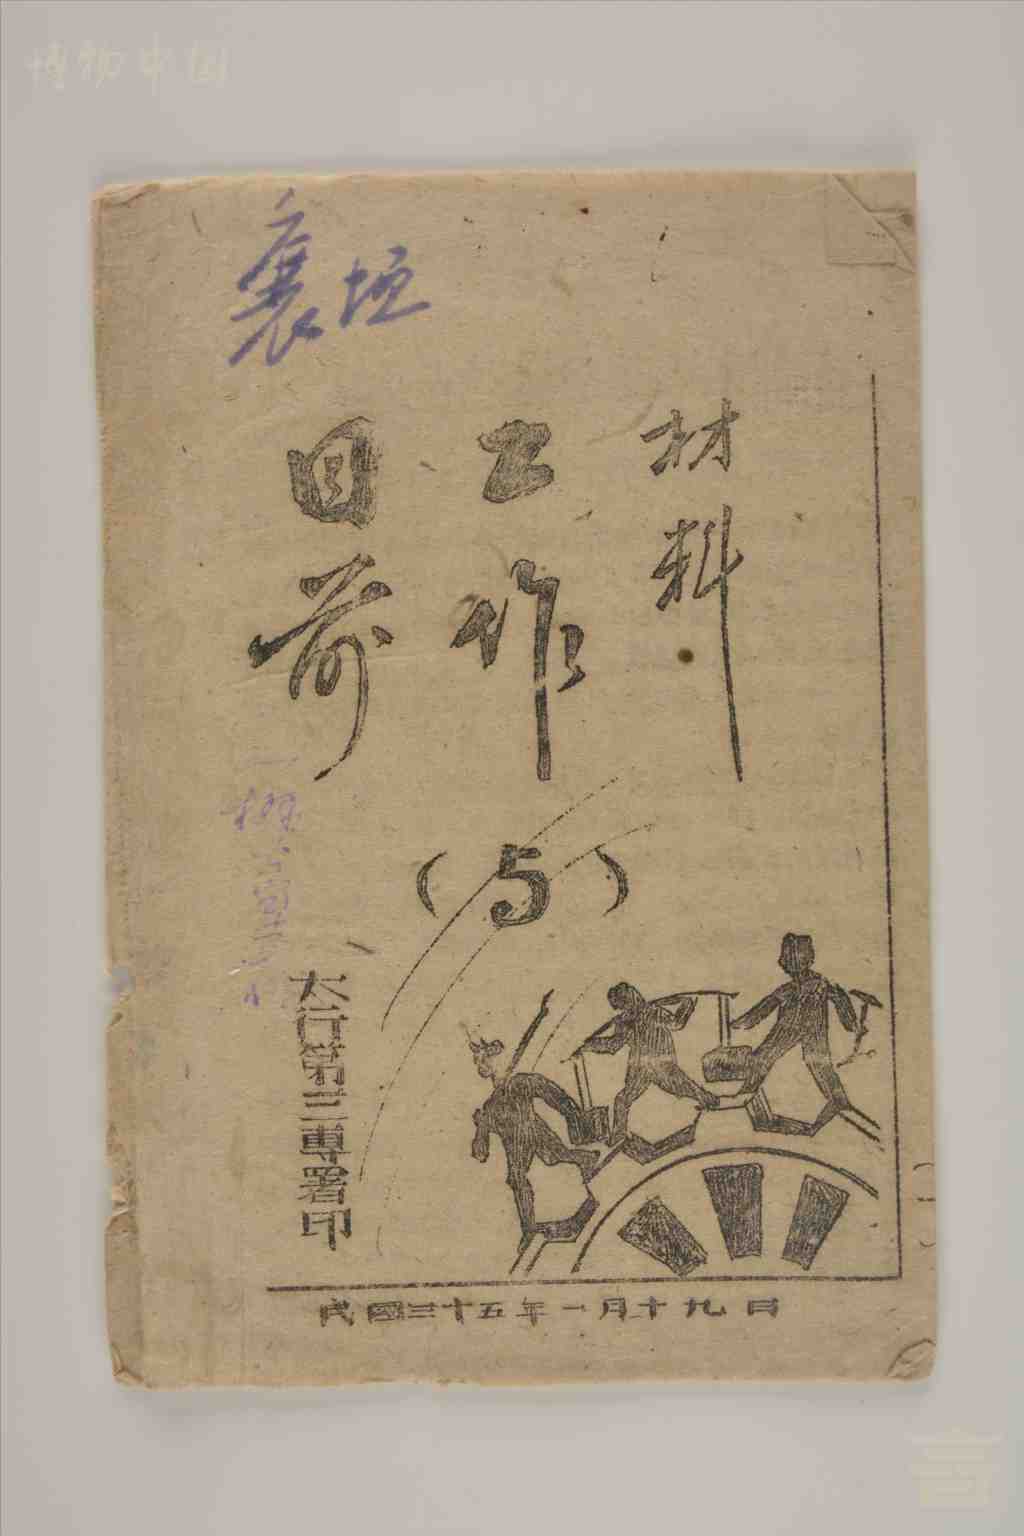 博物中国
襄垣
目前
工作
材料
(5)
太行第三專署印
民國三十五年一月十九日